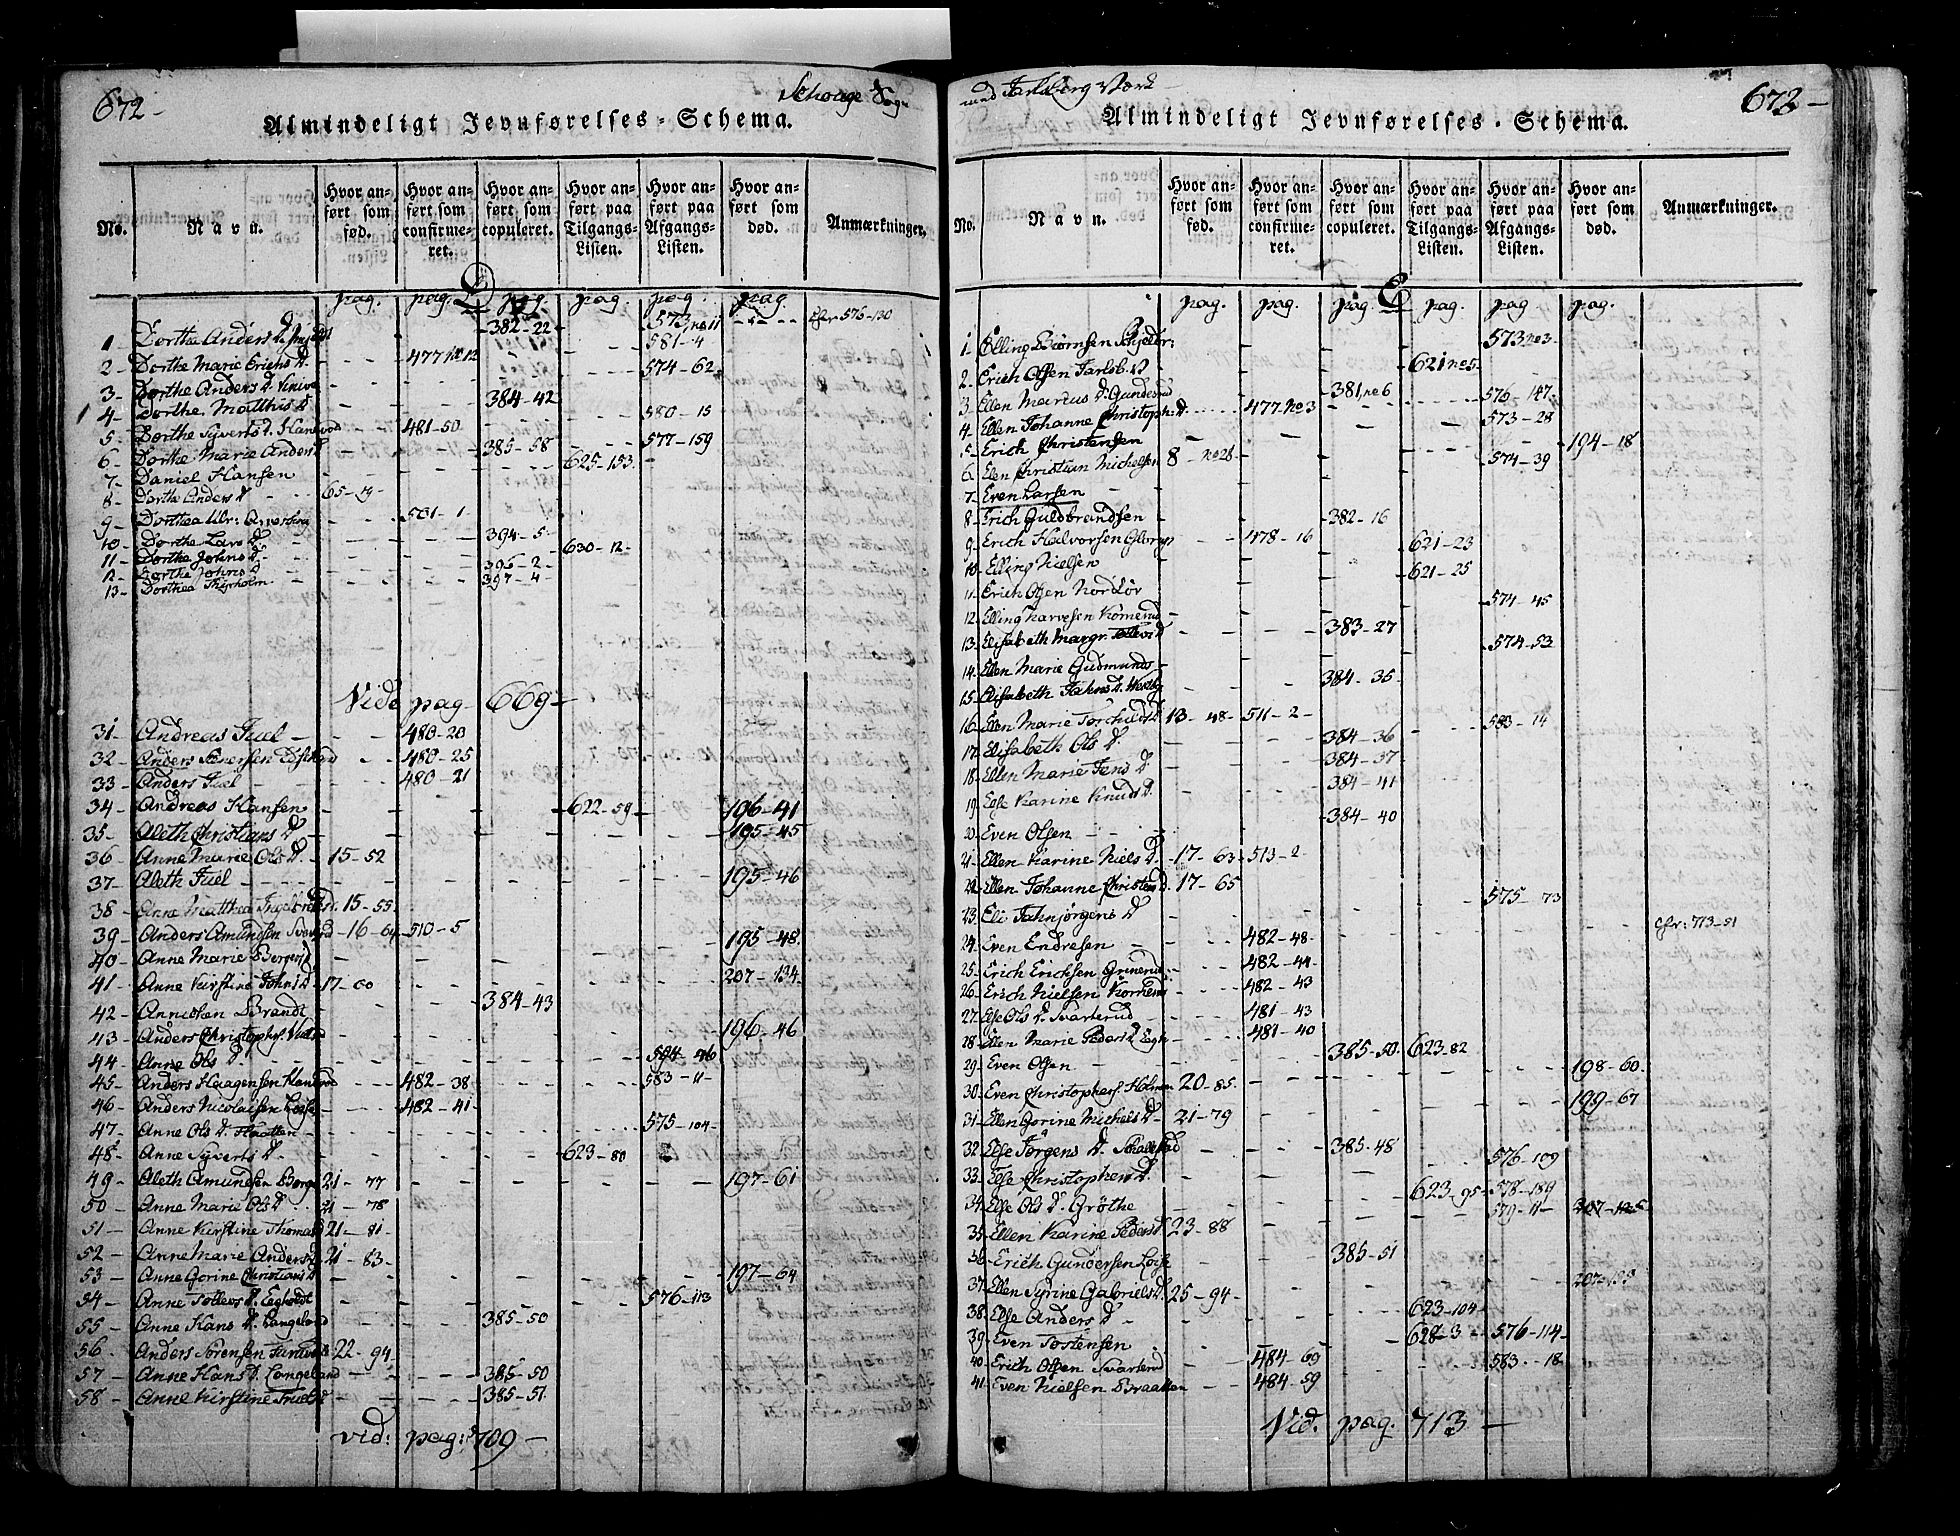 672-
Schouge Sogn
Almindeligt Jevnførelses-Schema.
No.
Navn.
Hvor anført som fød.
Hvor anført som confirmeret.
Hvor anført som copuleret.
Hvor anført paa Tilgangs-Listen.
Hvor anført paa Afgangs-Listen.
Hvor anført som død.
Anmærkninger.
D
pag. pag. pag. pag. pag. pag
1 - Dorthe Anders D. 382-22 573 no 11 Cfr 576-130
581-4
2 - Dorthe Marie Erichs D. 477 no 12
3 - Dorthe Anders D. 574-62
4 - Dorthe Matthis D 384-42
5 - Dorthe Syverts D. Hanevod 481-50 580-15
6 - Dorthe Marie Anders D 385-58 577-159
7 - Daniel Hansen 625-153
8 - Dorthe Anders D 65-19
9 - Dorthea Ulr: 501-1
10 - Dorthe Lars D 394-5
11 - Dorthe Johns D 630-12
12 - Dorthe Johns D 396-2
13 - Dorthea Thijrholm 397-4
Vide pag 669-
31 - Andreas Juel - 480-20
32 - Anders 480-25
33 - Anders Juel 480-21
34 - Andreas Hansen 622-59 196-41
35 - Aleth Christians D 195-45
36 - Anne Marie Ols D. 15-52
37 - Aleth Juel 195-46
38 - Anne Matthea 15-55
39 - Anders Amundsen 16-64 510-5
40 - Anne Marie 195-48
41 - Anne Kirstine Johns D. 17-60 207-134
42 - Annichen Brandt 384-43
43 - Anders Christophs. 196-46
44 - Anne Ols D 584-46
45 - Anders Haagensen Hanevod 482-38 583-11
46 - Anders Nicolaisen 482-41
47 - Anne Ols D. Haatten 575-104
48 - Anne Syverts D. 623-80
49 - Aleth Amundsen Borge 21-77 197-61
50 - Anne Marie Ols D. 21-78
51 - Anne Kirstine Thomas D 21-81
52 - Anne Marie Anders D 21-83
53 - Anne Gorine Christians D 197-64
54 - Anne Tollevs D. Egholdt 576-113
55 - Anne Hans D. Langeland 385-50
56 - Anders Sørensen 22-94
57 - Anne Hans D. Langeland 385-50
58 - Anne Kirstine 385-51
vid: pag: 709-
med Jarlsberg Værk
672-
Almindeligt Jevnførelses-Schema.
No.
Navn.
Hvor anført som fød.
Hvor anført som confirmeret.
Hvor anført som copuleret.
Hvor anført paa Tilgangs-Listen.
Hvor anført paa Afgangs-Listen.
Hvor anført som død.
Anmærkninger.
E
pag. pag. pag. pag. pag pag.
1 Elling Biørnsen 573 no 3
2 Erich Olsen Jarlsb. V 621 no 5
3 Ellen Marcus D. Gunderud 381 no 6 576 147
4 Ellen Johanne Christoph: D. 477 no 3 573-28
5 Erich Christensen 194-18
6 Elen Christian Michelsen 8 no 28 574-39
7 Even Larsen
8 Erich Guldbrandsen 382-16
9 Erich Halvorsen 478-16 621-23
10 Elling Nielsen 621-25
11 Erich Olsen 574-45
12 Elling Narvesen 383-27
13 Elisabeth Margr. Tollevs D 574-53
14 Ellen Marie Gudmunds 384-35
15 Elisabeth Jahns D.
16 Ellen Marie Torchilds D 13-48 511-2 583-14
17 Elisabeth Ols D. 384-36
18 Ellen Marie Jens D 384-37
384-41
19 Else Karine Knuds D. 384-40
20 Even Olsen
21 Ellen Karine Niels D. 17-63 513-2
22 Ellen Johanne Christens D. 17-65 575-73
23 Eli Jahnjørgens D
24 Even Endresen 482-48 Cfr: 713-51
25 Erich Erichsen Grinerud 482-44
26 Erich Nielsen 482-43
27 Else Ols D. Svarterud 481-43
28 Ellen Marie Peders D 481-40
29 Even Olsen 385-50 623-82 198-60
30 Even Christophers. Holmen 20-85
31 Ellen Gorine Michels D 21-79 199-67
32 Else Jørgens D. 385-48
33 Else Christophers D. 576-109
34 Else Ols D. Grøthe 623-95 578-189
579-11 207-125
35 Ellen Karine Peders D 23-88
36 Erich Gundersen 385-51
37 Ellen Syrine Gabriels D. 25-94
38 Else Anders D 623-104
39 Even Tostensen 628-3 576-114
40 Erich Olsen Svarterud 484-69 583-18
41 Even Nielsen Braatten 484-59
Vid. pag. 713-